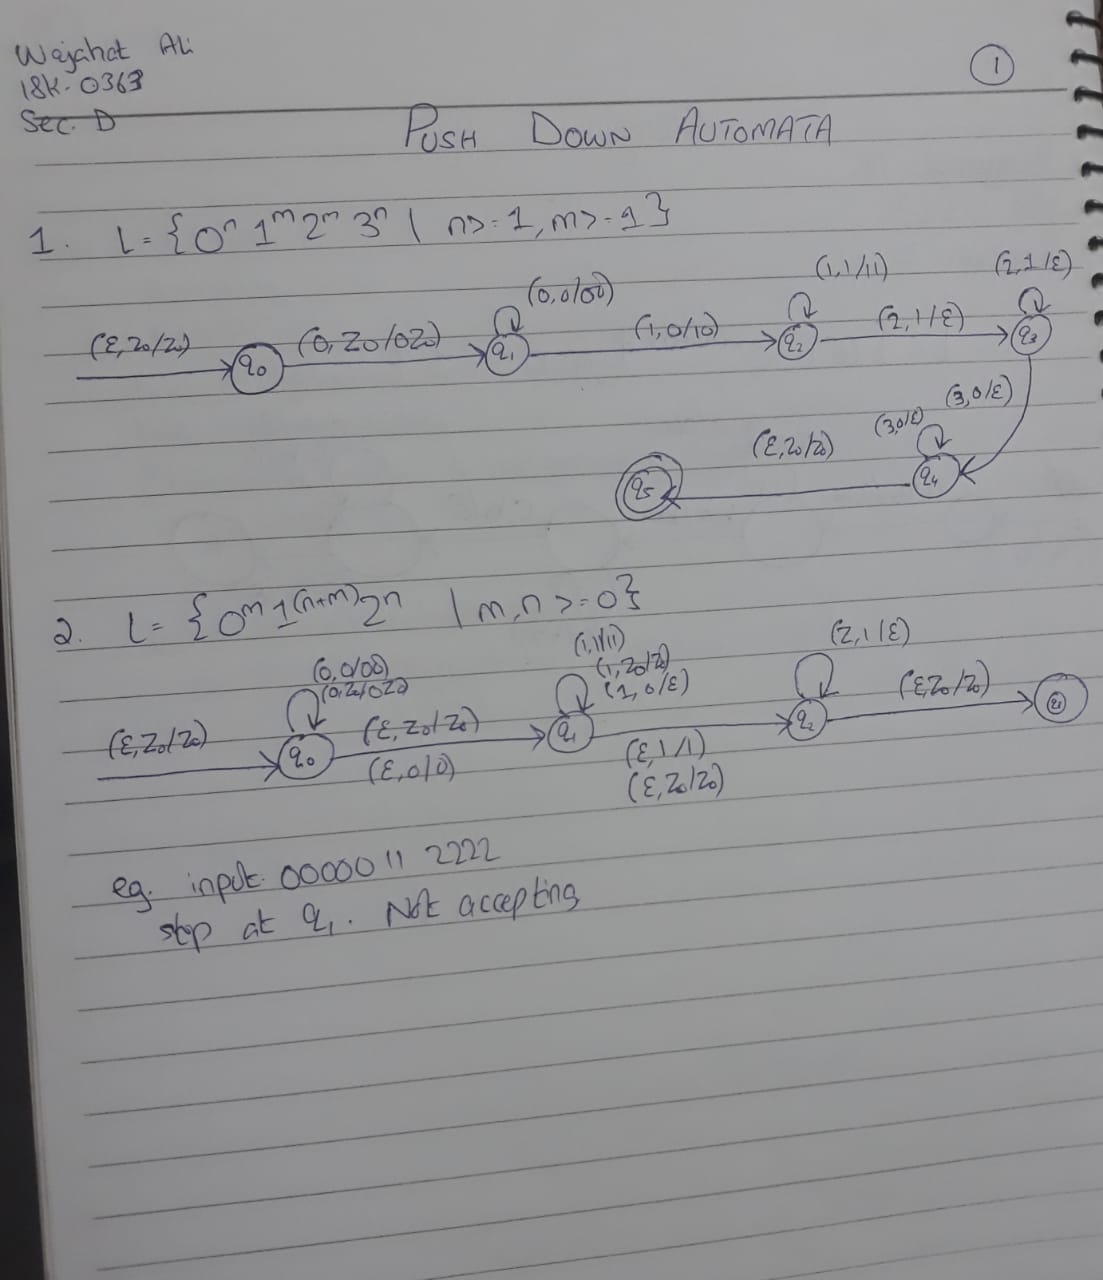 Wajahat Ali
18K-0363
Sec. D
1
PUSH DOWN AUTOMATA
1. L = {0ⁿ 1ᵐ 2ᵐ 3ⁿ | n>=1, m>=1}
(ε, z₀/z₀) q₀ (0, z₀/0z₀) q₁ (0,0/00) (1,0/10) q₂ (1,1/11) (2,1/ε) q₃ (2,1/ε)
(3,0/ε)
q₅ (ε,z₀/z₀) q₄ (3,0/ε)
2. L = {0ᵐ 1⁽ⁿ⁺ᵐ⁾ 2ⁿ | m,n >=0}
(0,0/00) (1,1/11) (2,1/ε)
(0,z₀/0z₀) (1,z₀/z₀)
(1,0/ε)
(ε,z₀/z₀) q₀ (ε,z₀/z₀) q₁ q₂ (ε,z₀/z₀)
(ε,0/0) (ε,1/1)
(ε,z₀/z₀)
eg. input: 00000 11 2222
stop at q₁. Not accepting